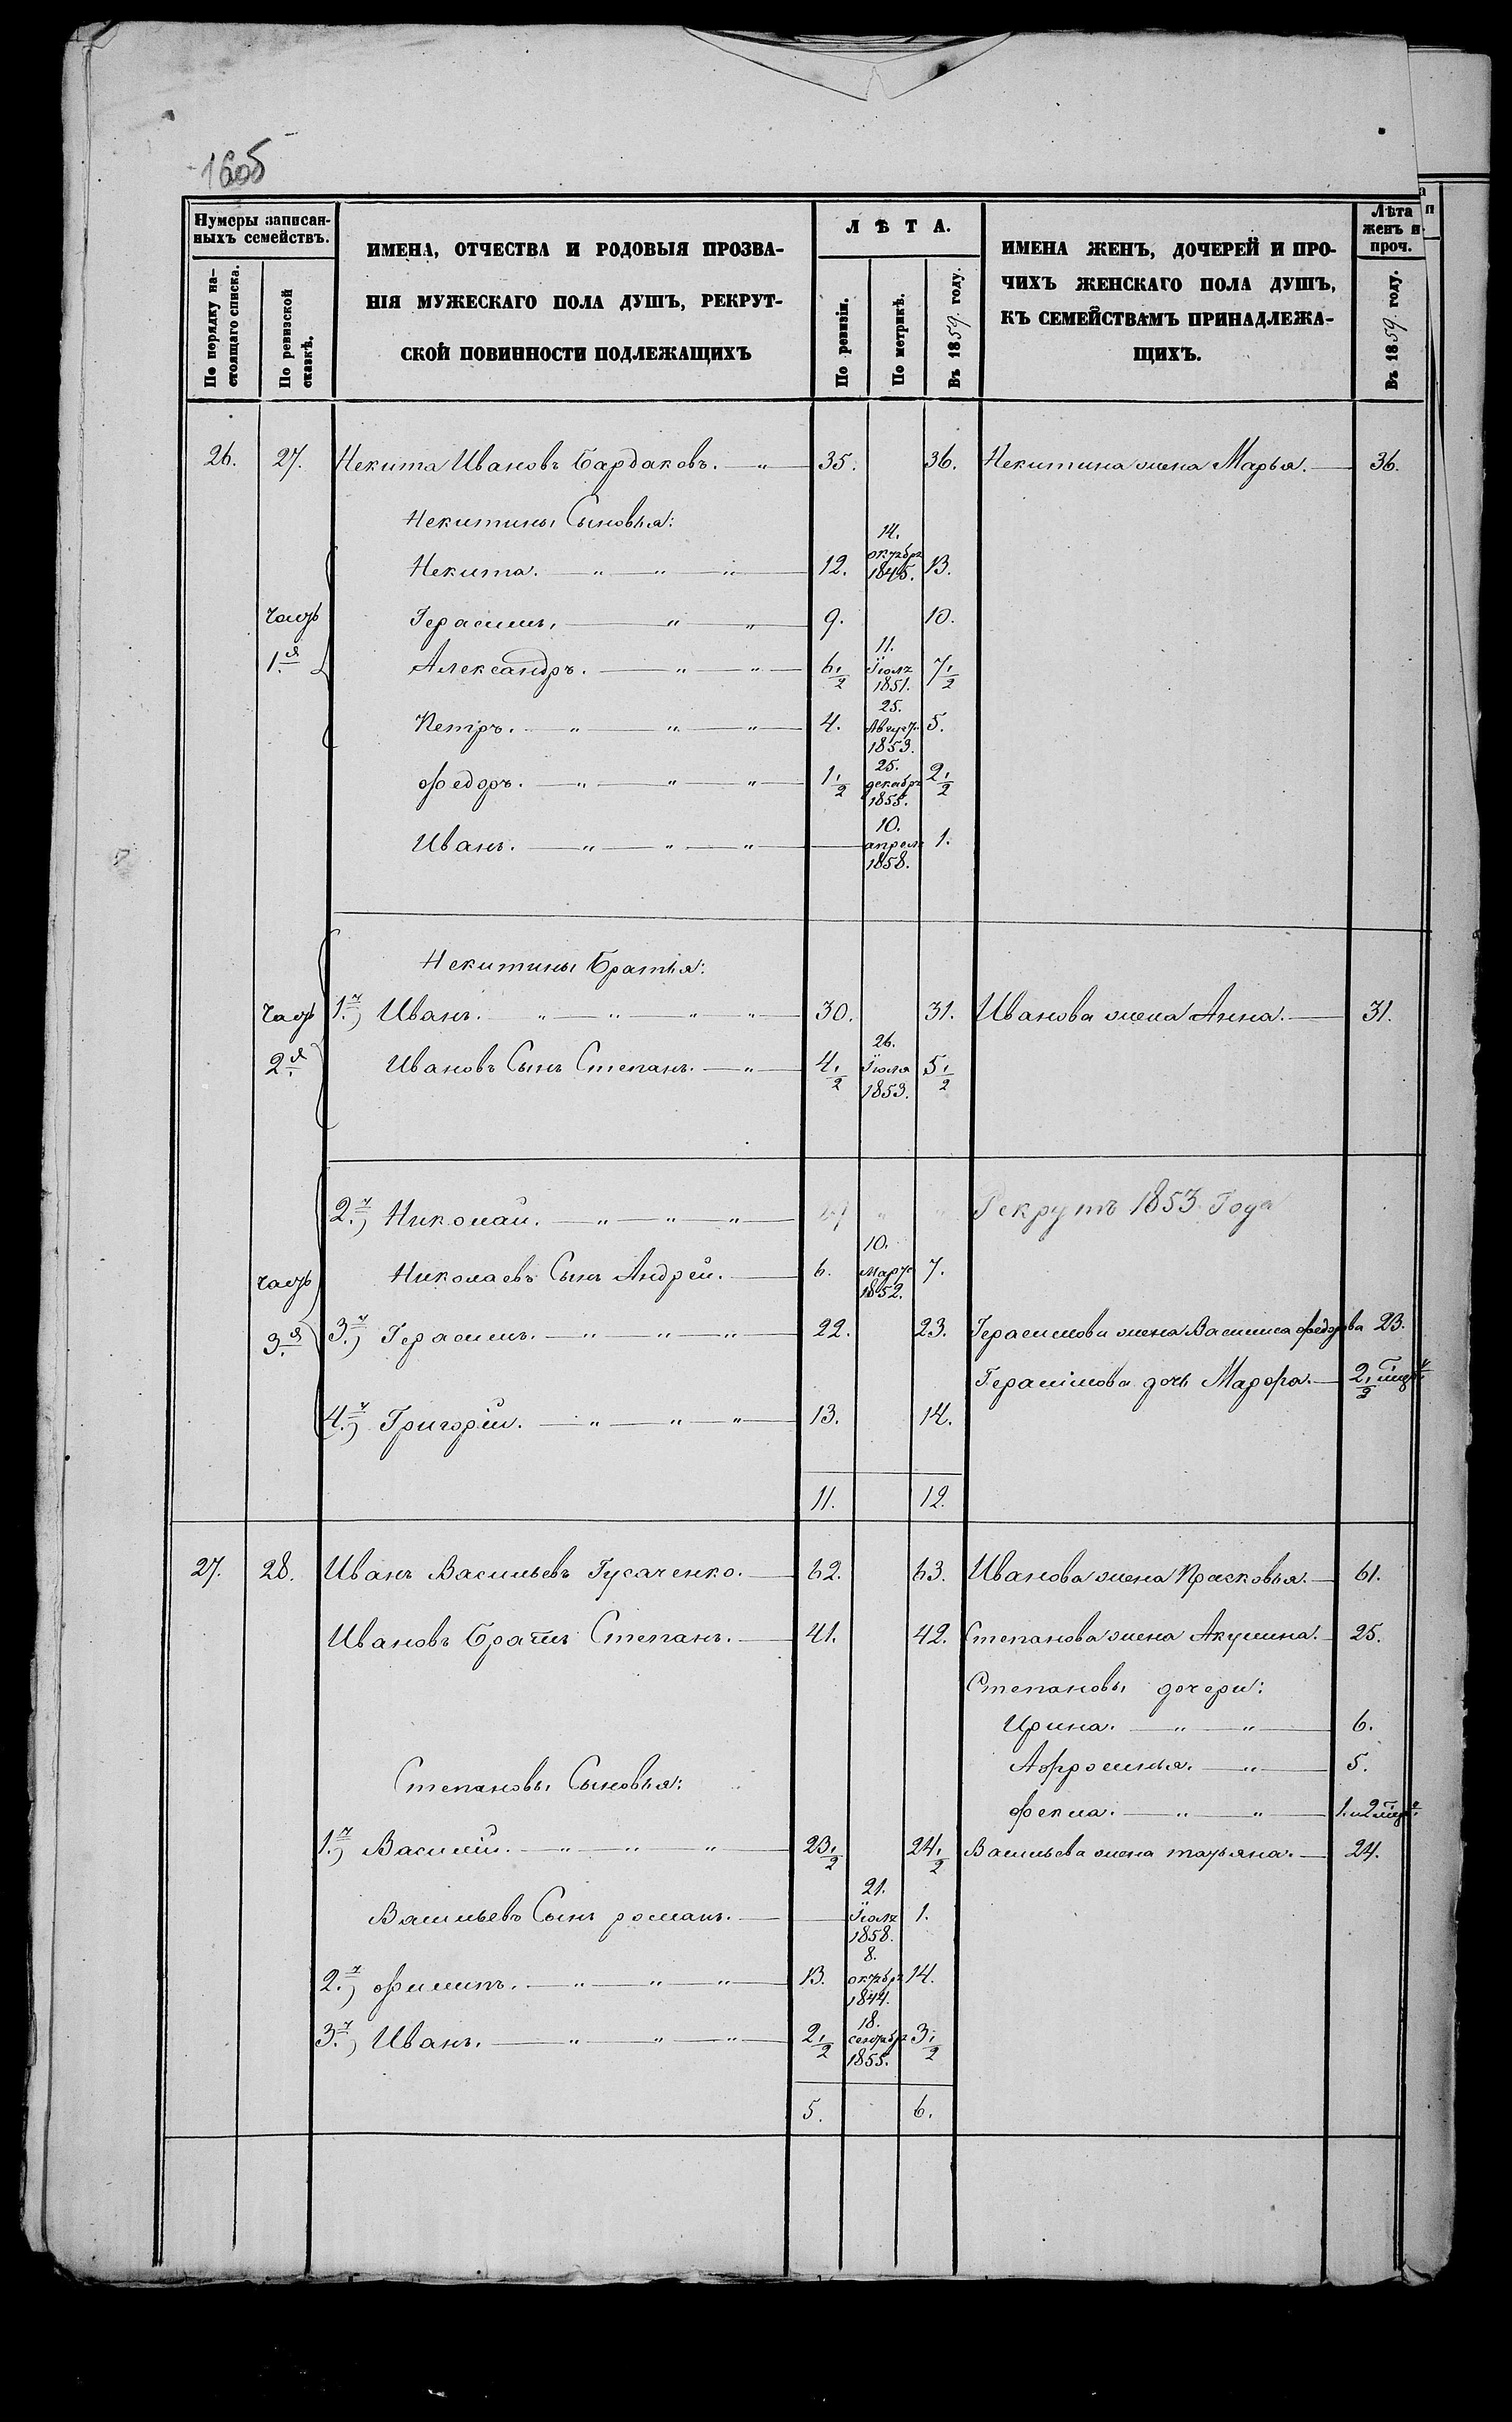 1605
Нумеры записан-
ныхъ семействъ.
По порядку на-
стоящаго списка.
По ревизской
сказкѣ.
ИМЕНА, ОТЧЕСТВА И РОДОВЫЯ ПРОЗВА-
НІЯ МУЖЕСКАГО ПОЛА ДУШЪ, РЕКРУТ-
СКОЙ ПОВИННОСТИ ПОДЛЕЖАЩИХЪ
ЛѢТА.
По ревизіи.
По метрикѣ.
Въ 1859 году.
ИМЕНА ЖЕНЪ, ДОЧЕРЕЙ И ПРО-
ЧИХЪ ЖЕНСКАГО ПОЛА ДУШЪ,
КЪ СЕМЕЙСТВАМЪ ПРИНАДЛЕЖА-
ЩИХЪ.
Лѣта
женъ и
проч.
Въ 1859 году.
26. 27. Некита Ивановъ Бардаковъ. " 35. 36. Некитина жена Марья. 36.
Некитины Сыновья:
Некита. " " " 12. 14. октябр 1845. 13.
часть Герасимъ. " " 9. 10.
1.я Александръ. " " 6 1/2 11. Іюля 1851. 7 1/2
Петръ. " " " 4. 25. Август 1853. 5.
Федоръ. " " " 1 1/2 25. декабр 1855. 2 1/2
Иванъ. " " " 10. апреля 1858. 1.
Некитины Братья:
часть 1.й) Иванъ. " " " " 30. 31. Иванова жена Анна. 31.
2.я Ивановъ Сынъ Степанъ. " 4 1/2 26. Іюля 1853. 5 1/2
2.й) Николай. " " " 27 " " Рекрутъ 1853 Года
часть Николаевъ Сынъ Андрей. 6. 10. Март 1852. 7.
3.я 3.й) Герасимъ. " " " 22. 23. Герасимова жена Василиса Федорова 23.
Герасимова дочь Марфа. 2 1/2
4.й) Григорій. " " " 13. 14.
11. 12.
27. 28. Иванъ Васильевъ Гусаченко. 62. 63. Иванова жена Прасковья. 61.
Ивановъ Братъ Степанъ. 41. 42. Степанова жена Акулина. 25.
Степановы дочери:
Ирина. " " 6.
Афросинья. " 5.
Степановы Сыновья:
Фекла. " "
1.й) Василій. " " " 23 1/2 24 1/2 Васильева жена татьяна. 24.
Васильевъ Сынъ романъ. 21. Іюля 1858. 1.
2.й) Филипъ. " " " 13. 8. октябр 1844. 14.
3.й) Иванъ. " " " 2 1/2 18. сентябр 1855. 3 1/2
5. 6.